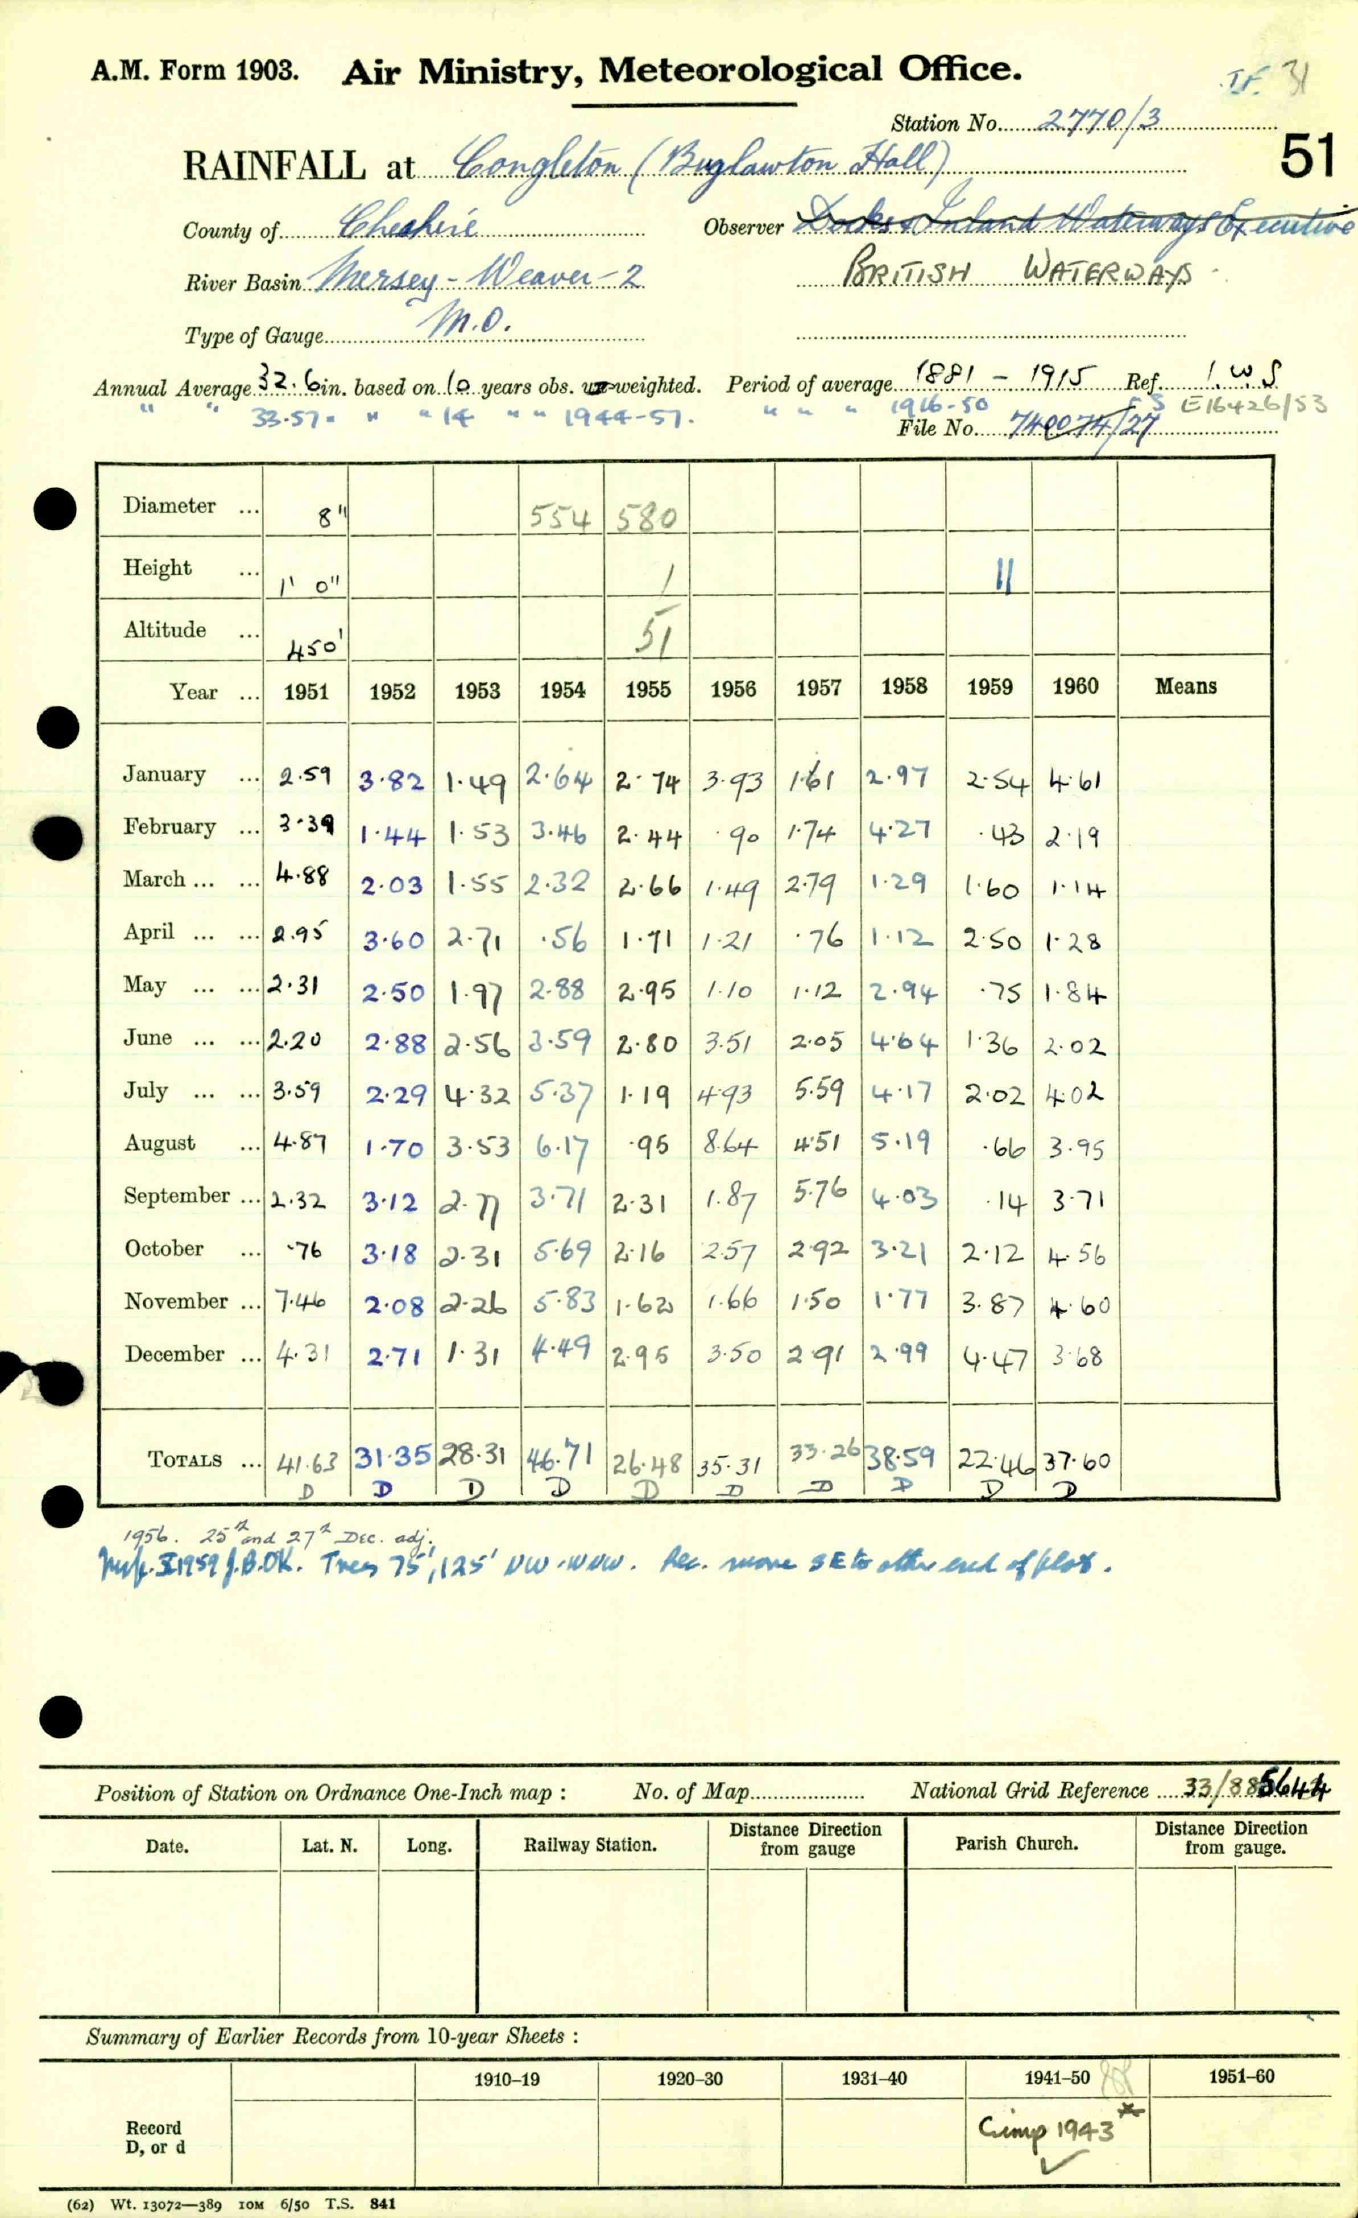 A.M. Form 1903. Air Ministry, Meteorological Office.
31
Station No. 2770/3
51
RAINFALL at Congleton (Buglawton Hall)
County of Cheshire Observer Docks & Inland Waterways Executive
River Basin Mersey - Weaver - 2 BRITISH WATERWAYS
Type of Gauge M.O.
Annual Average 32.6 in. based on 10 years obs. weighted. Period of average 1881 - 1915 Ref. I.W.S
" " 33.57 " " " 14 " " 1944-57. " " " 1916-50 E16426/53
File No. 740074/27
Diameter ... 8" 554 580
Height ... 1' 0" 1 11
Altitude ... 450' 51
Year ... 1951 1952 1953 1954 1955 1956 1957 1958 1959 1960 Means
January ... 2.59 3.82 1.49 2.64 2.74 3.93 1.61 2.97 2.54 4.61
February ... 3.39 1.44 1.53 3.46 2.44 .90 1.74 4.27 .43 2.19
March ... ... 4.88 2.03 1.55 2.32 2.66 1.49 2.79 1.29 1.60 1.14
April ... ... 2.95 3.60 2.71 .56 1.71 1.21 .76 1.12 2.50 1.28
May ... ... 2.31 2.50 1.97 2.88 2.95 1.10 1.12 2.94 .75 1.84
June ... ... 2.20 2.88 2.56 3.59 2.80 3.51 2.05 4.64 1.36 2.02
July ... ... 3.59 2.29 4.32 5.37 1.19 4.93 5.59 4.17 2.02 4.02
August ... 4.87 1.70 3.53 6.17 .95 8.64 4.51 5.19 .66 3.95
September ... 2.32 3.12 2.77 3.71 2.31 1.87 5.76 4.03 .14 3.71
October ... .76 3.18 2.31 5.69 2.16 2.57 2.92 3.21 2.12 4.56
November ... 7.46 2.08 2.26 5.83 1.62 1.66 1.50 1.77 3.87 4.60
December ... 4.31 2.71 1.31 4.49 2.95 3.50 2.91 2.99 4.47 3.68
TOTALS ... 41.63 31.35 28.31 46.71 26.48 35.31 33.26 38.59 22.46 37.60
D D D D D D D D D D
1956. 25th and 27th Dec. adj.
Insp. X 1959 J.B. OK. Trees 75', 125' NW-WNW. Rec. move SE to other end of plot.
Position of Station on Ordnance One-Inch map : No. of Map National Grid Reference 33/885644
Date. Lat. N. Long. Railway Station. Distance from Direction gauge Parish Church. Distance from Direction gauge.
Summary of Earlier Records from 10-year Sheets :
1910-19 1920-30 1931-40 1941-50 1951-60
Record D, or d Cimp 1943 *
(62) Wt. 13072—389 IOM 6/50 T.S. 841